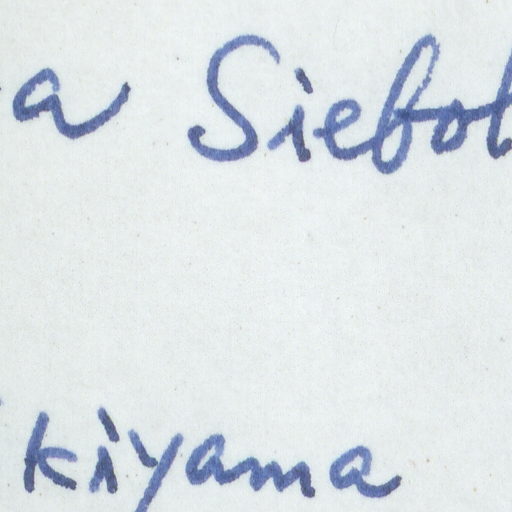 a Siebol
kiyama